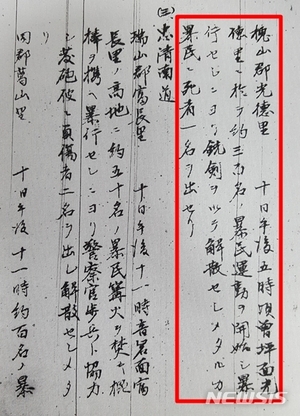 槐山郡光徳里 十日午後五時頃曽坪面光
徳里ニ於テ約三百名ノ暴民運動ヲ開始シ暴
行セシニヨリ銃剣ヲ以テ解散セシメタルカ
暴民ニ死者一名ヲ出セリ
(三)忠清南道
瑞山郡富長里 十日午後十一時音岩面富
長里ノ高地ニ約五十名ノ暴民篝火ヲ焚キ棍
棒ヲ携ヘ暴行セシニヨリ警察官歩兵ト協力
シ発砲彼ニ負傷者一名ヲ出シ解散セシメタ
リ
同郡葛山里 十日午後十一時約百名ノ暴
NEWSIS